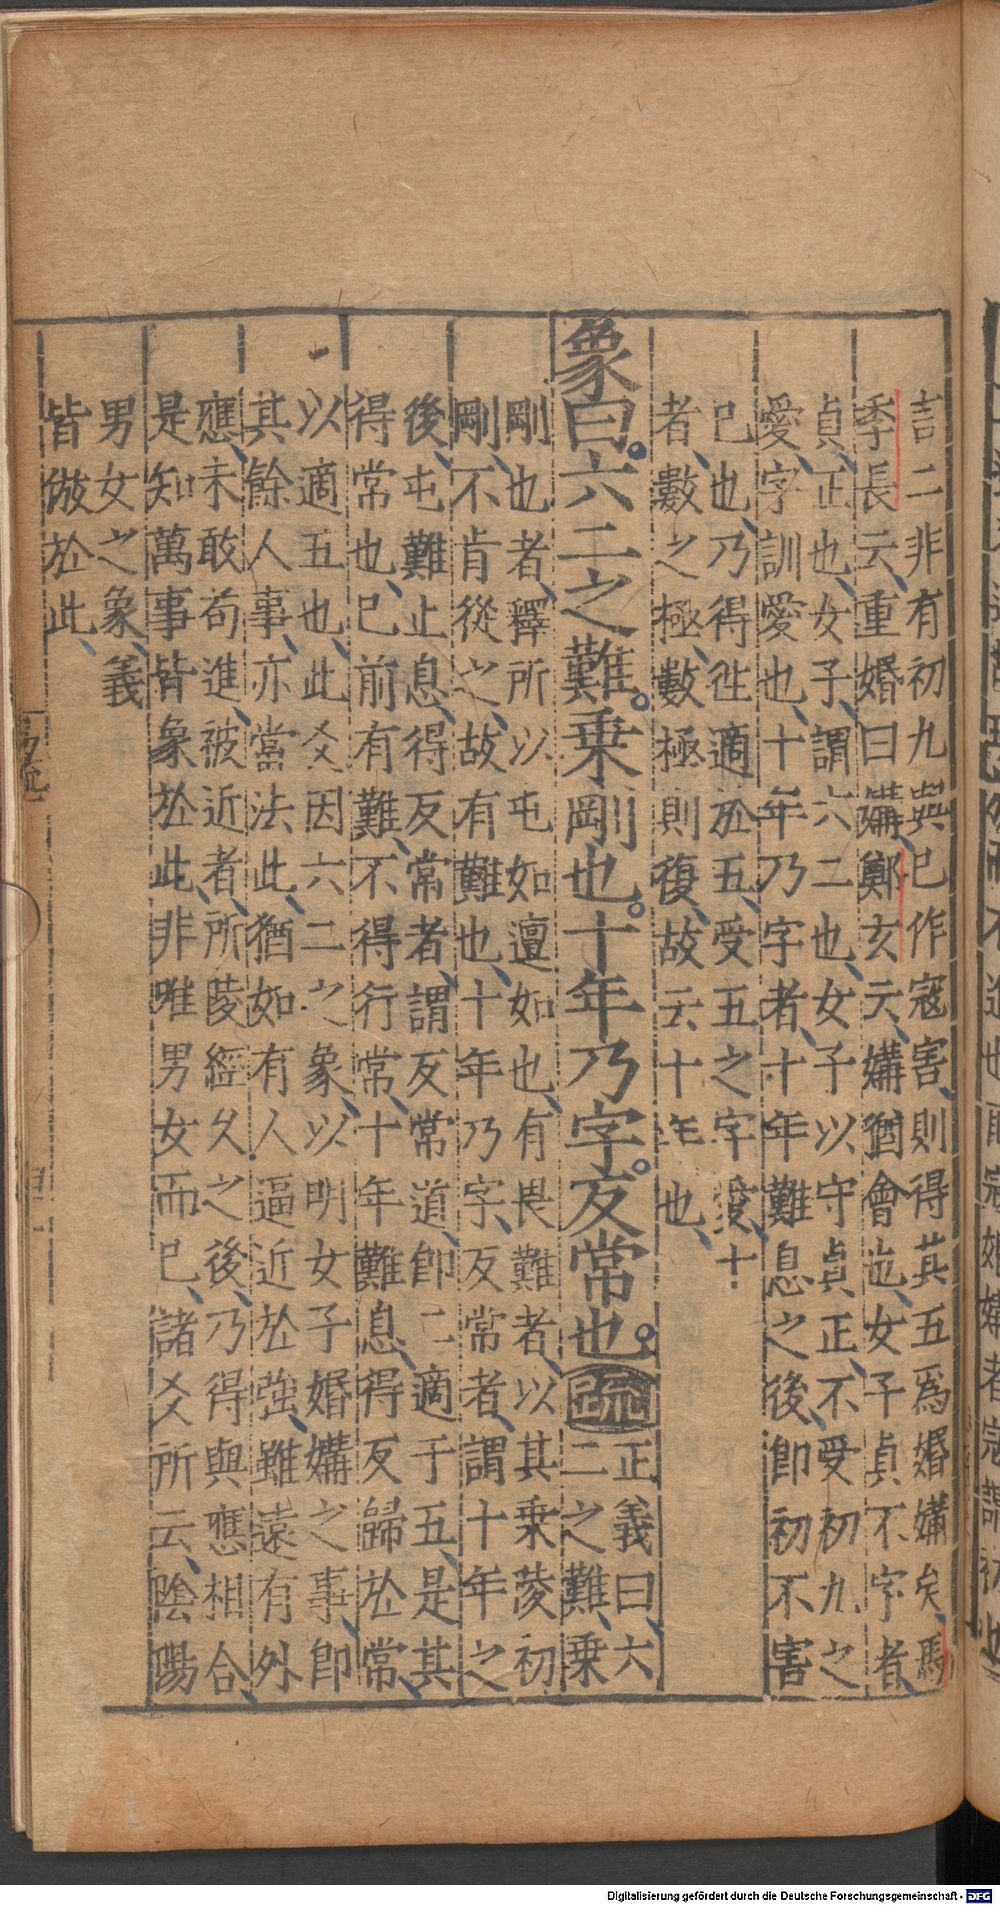 言二非有初九與巳作寇害則得其五爲婚媾矣馬
季長云重婚曰媾鄭玄云媾猶會也女子貞不字者
貞正也女子謂六二也女子以守貞正不受初九之
愛字訓愛也十年乃字者十年難息之後即初不害
己也乃得往適於五受五之字愛十
者數之極數極則復故云十年也
象曰六二之難乗剛也十年乃字反常也疏
正義曰六
二之難乗
剛也者釋所以屯如邅如也有畏難者以其乗陵初
剛不肯從之故有難也十年乃字反常者謂十年之
後屯難止息得反常者謂反常道即二適于五是其
得常也巳前有難不得行常十年難息得反歸於常
以適五也此爻因六二之象以明女子婚媾之事即
其餘人事亦當法此猶如有人逼近於強雖遠有外
應未敢苟進被近者所陵經久之後乃得與應相合
是知萬事皆象於此非唯男女而巳諸爻所云陰陽
男女之象義
皆倣於此
Digitalisierung gefördert durch die Deutsche Forschungsgemeinschaft - DFG